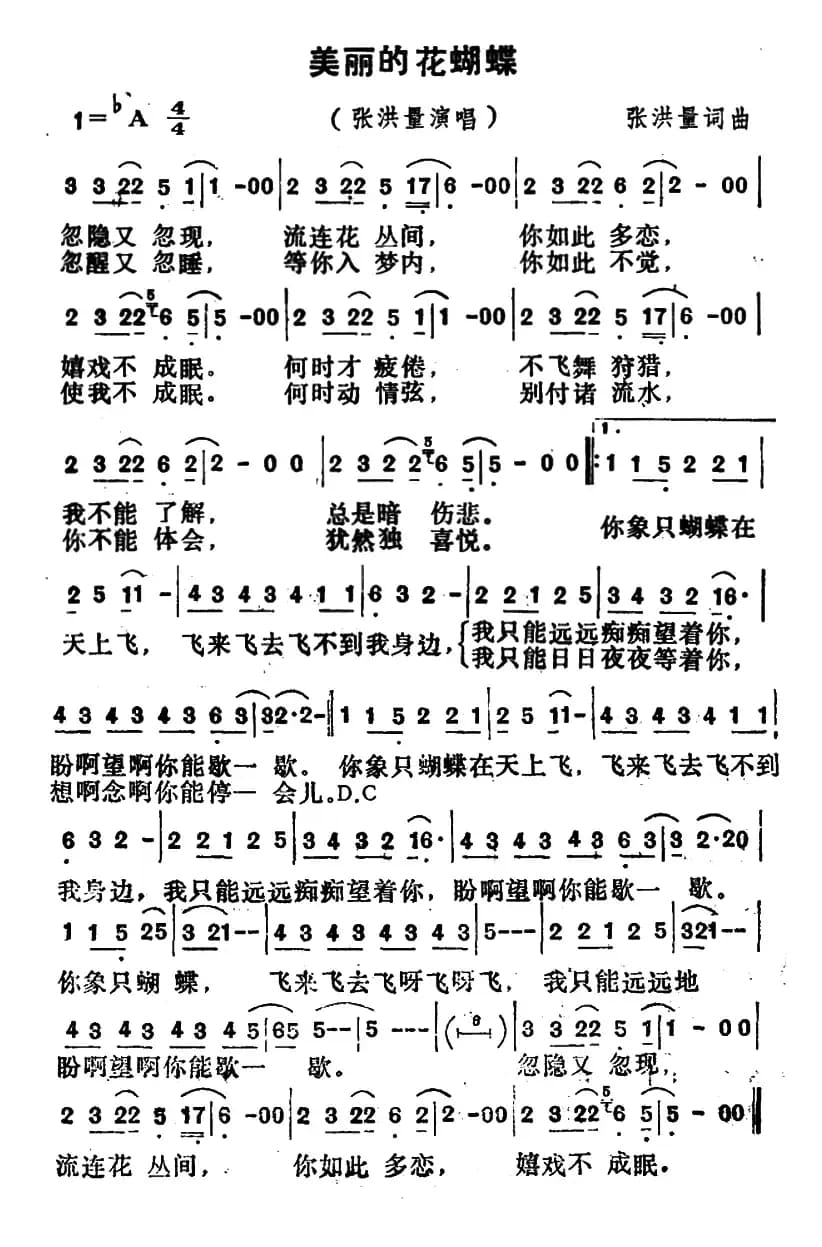 美丽的花蝴蝶
1=♭A 4/4 （张洪量演唱） 张洪量词曲
3 3 22 5 1|1 -00|2 3 22 5 17|6 -00|2 3 22 6 2|2 - 00|
忽隐又 忽现， 流连花 丛间， 你如此 多恋，
忽醒又 忽睡， 等你入 梦内， 你如此 不觉，
2 3 22 5 6 5|5 -00|2 3 22 5 1|1 -00|2 3 22 5 17|6 -00|
嬉戏不 成眠。 何时才 疲倦， 不飞舞 狩猎，
使我不 成眠。 何时动 情弦， 别付诸 流水，
2 3 22 6 2|2 - 0 0|2 3 2 2 5 6 5|5 - 0 0:1. 1 1 5 2 2 1|
我不能 了解， 总是暗 伤悲。 你象只蝴蝶在
你不能 体会， 犹然独 喜悦。
2 5 11 -|4 3 4 3 4 1 1|6 3 2 -|2 2 1 2 5|3 4 3 2 16·|
天上飞， 飞来飞去飞不到我身边，{我只能远远痴痴望着你，
我只能日日夜夜等着你，
4 3 4 3 4 3 6 3|3 2·2-‖1 1 5 2 2 1|2 5 11-|4 3 4 3 4 1 1|
盼啊望啊你能歇一 歇。 你象只蝴蝶在天上飞， 飞来飞去飞不到
想啊念啊你能停一 会儿。D.C
6 3 2 -|2 2 1 2 5|3 4 3 2 16·|4 3 4 3 4 3 6 3|3 2·20|
我身边，我只能远远痴痴望着你，盼啊望啊你能歇一 歇。
1 1 5 25|3 21--|4 3 4 3 4 3 4 3|5---|2 2 1 2 5|321--|
你象只蝴 蝶， 飞来飞去飞呀飞呀飞， 我只能远远地
4 3 4 3 4 3 4 5|65 5--|5 ---|(8)|3 3 22 5 1|1 - 00|
盼啊望啊你能歇一 歇。 忽隐又 忽现，
2 3 22 5 17|6 -00|2 3 22 6 2|2 -00|2 3 22 5 6 5|5 - 00‖
流连花 丛间， 你如此 多恋， 嬉戏不 成眠。